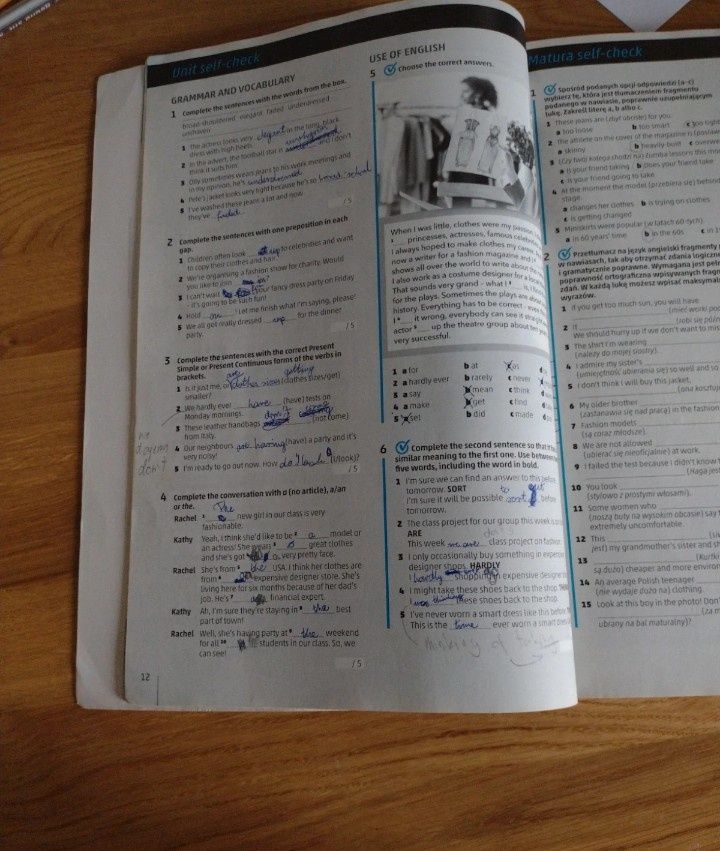 Unit self-check
GRAMMAR AND VOCABULARY
1 Complete the sentences with the words from the box.
broad-shouldered elegant faded underdressed
unshaven
1 The actress looks very elegant in the long, black
dress with high heels.
2 In the advert, the football star is and I don't
think it suits him.
3 Olly sometimes wears jeans to his work meetings and
in my opinion, he's underdressed
4 Pete's jacket looks very tight because he's so
5 I've washed these jeans a lot and now
they've faded
2 Complete the sentences with one preposition in each
gap.
1 Children often look up to celebrities and want
to copy their clothes and hair.
2 We're organising a fashion show for charity. Would
you like to join
3 I can't wait your fancy dress party on Friday
- it's going to be such fun!
4 Hold on ! Let me finish what I'm saying, please!
5 We all get really dressed up for the dinner
party.
/5
3 Complete the sentences with the correct Present
Simple or Present Continuous forms of the verbs in
brackets.
are getting
1 Is it just me, or clothes sizes (clothes sizes/get)
smaller?
2 We hardly ever have (have) tests on
Monday mornings.
3 These leather handbags don't (not come)
from Italy.
4 Our neighbours are having (have) a party and it's
very noisy!
5 I'm ready to go out now. How do I look (I/look)?
/5
4 Complete the conversation with Ø (no article), a/an
or the.
Rachel 1 The new girl in our class is very
fashionable.
Kathy Yeah, I think she'd like to be 2 a model or
an actress! She wears 3 great clothes
and she's got 4 a very pretty face.
Rachel She's from 5 the USA. I think her clothes are
from 6 expensive designer store. She's
living here for six months because of her dad's
job. He's 7 a financial expert.
Kathy Ah, I'm sure they're staying in 8 the best
part of town!
Rachel Well, she's having party at 9 the weekend
for all 10 students in our class. So, we
can see!
/5
12
USE OF ENGLISH
5 Choose the correct answers.
When I was little, clothes were my passion
1 princesses, actresses, famous
I always hoped to make clothes my
now a writer for a fashion magazine and
shows all over the world to write about
I also work as a costume designer for a
That sounds very grand – what I is,
for the plays. Sometimes the plays are
history. Everything has to be correct – ever
I 4 it wrong, everybody can see it
actor 5 up the theatre group about ten
very successful.
1 a for b at c as d
2 a hardly ever b rarely c never d
3 a say b mean c think d
4 a make b get c find d
5 a set b did c made d
6 Complete the second sentence so that it
similar meaning to the first one. Use between
five words, including the word in bold.
1 I'm sure we can find an answer to this before
tomorrow. SORT
to get
I'm sure it will be possible sort before
tomorrow.
2 The class project for our group this week is
ARE
This week we are class project on fashion.
3 I only occasionally buy something in expensive
designer shops. HARDLY
I hardly shopping in expensive designer
4 I might take these shoes back to the shop.
I these shoes back to the shop.
5 I've never worn a smart dress like this before.
This is the time ever worn a smart dress
thinking of
Matura self-check
1 Spośród podanych opcji odpowiedzi (a–c)
wybierz tę, która jest tłumaczeniem fragmentu
podanego w nawiasie, poprawnie uzupełniającym
lukę. Zakreśl literę a, b albo c.
1 These jeans are (zbyt obcisłe) for you.
a too loose b too smart c too tight
2 The athlete on the cover of the magazine is
a skinny b heavily built c
3 (Czy twój kolega chodzi na) zumba lessons this
a Is your friend taking b Does your friend take
c Is your friend going to take
4 At the moment the model (przebiera się) behind
stage.
a changes her clothes b is trying on clothes
c is getting changed
5 Miniskirts were popular (w latach 60-tych).
a in 60 years' time b in the 60s c in
2 Przetłumacz na język angielski fragmenty
w nawiasach, tak aby otrzymać zdania logiczne
i gramatycznie poprawne. Wymagana jest pełna
poprawność ortograficzna wpisywanych fragmentów
zdań. W każdą lukę możesz wpisać maksymalnie
wyrazów.
1 If you get too much sun, you will have
(mieć worki pod
2 It
(robi się późno
We should hurry up if we don't want to be
3 The shirt I'm wearing
(należy do mojej siostry).
4 I admire my sister's
(umiejętność ubierania się) so well and so
5 I don't think I will buy this jacket,
(ona kosztuje
6 My older brother
(zastanawia się nad pracą) in the fashion
7 Fashion models
(są coraz młodsze).
8 We are not allowed
(ubierać się nieoficjalnie) at work.
9 I failed the test because I didn't know
(Haga
10 You look
(stylowo z prostymi włosami).
11 Some women who
(noszą buty na wysokim obcasie) say
extremely uncomfortable.
12 This
jest) my grandmother's sister and
13 (Kurtki
są dużo) cheaper and more
14 An average Polish teenager
(nie wydaje dużo na) clothing.
15 Look at this boy in the photo!
(za
ubrany na bal maturalny)?